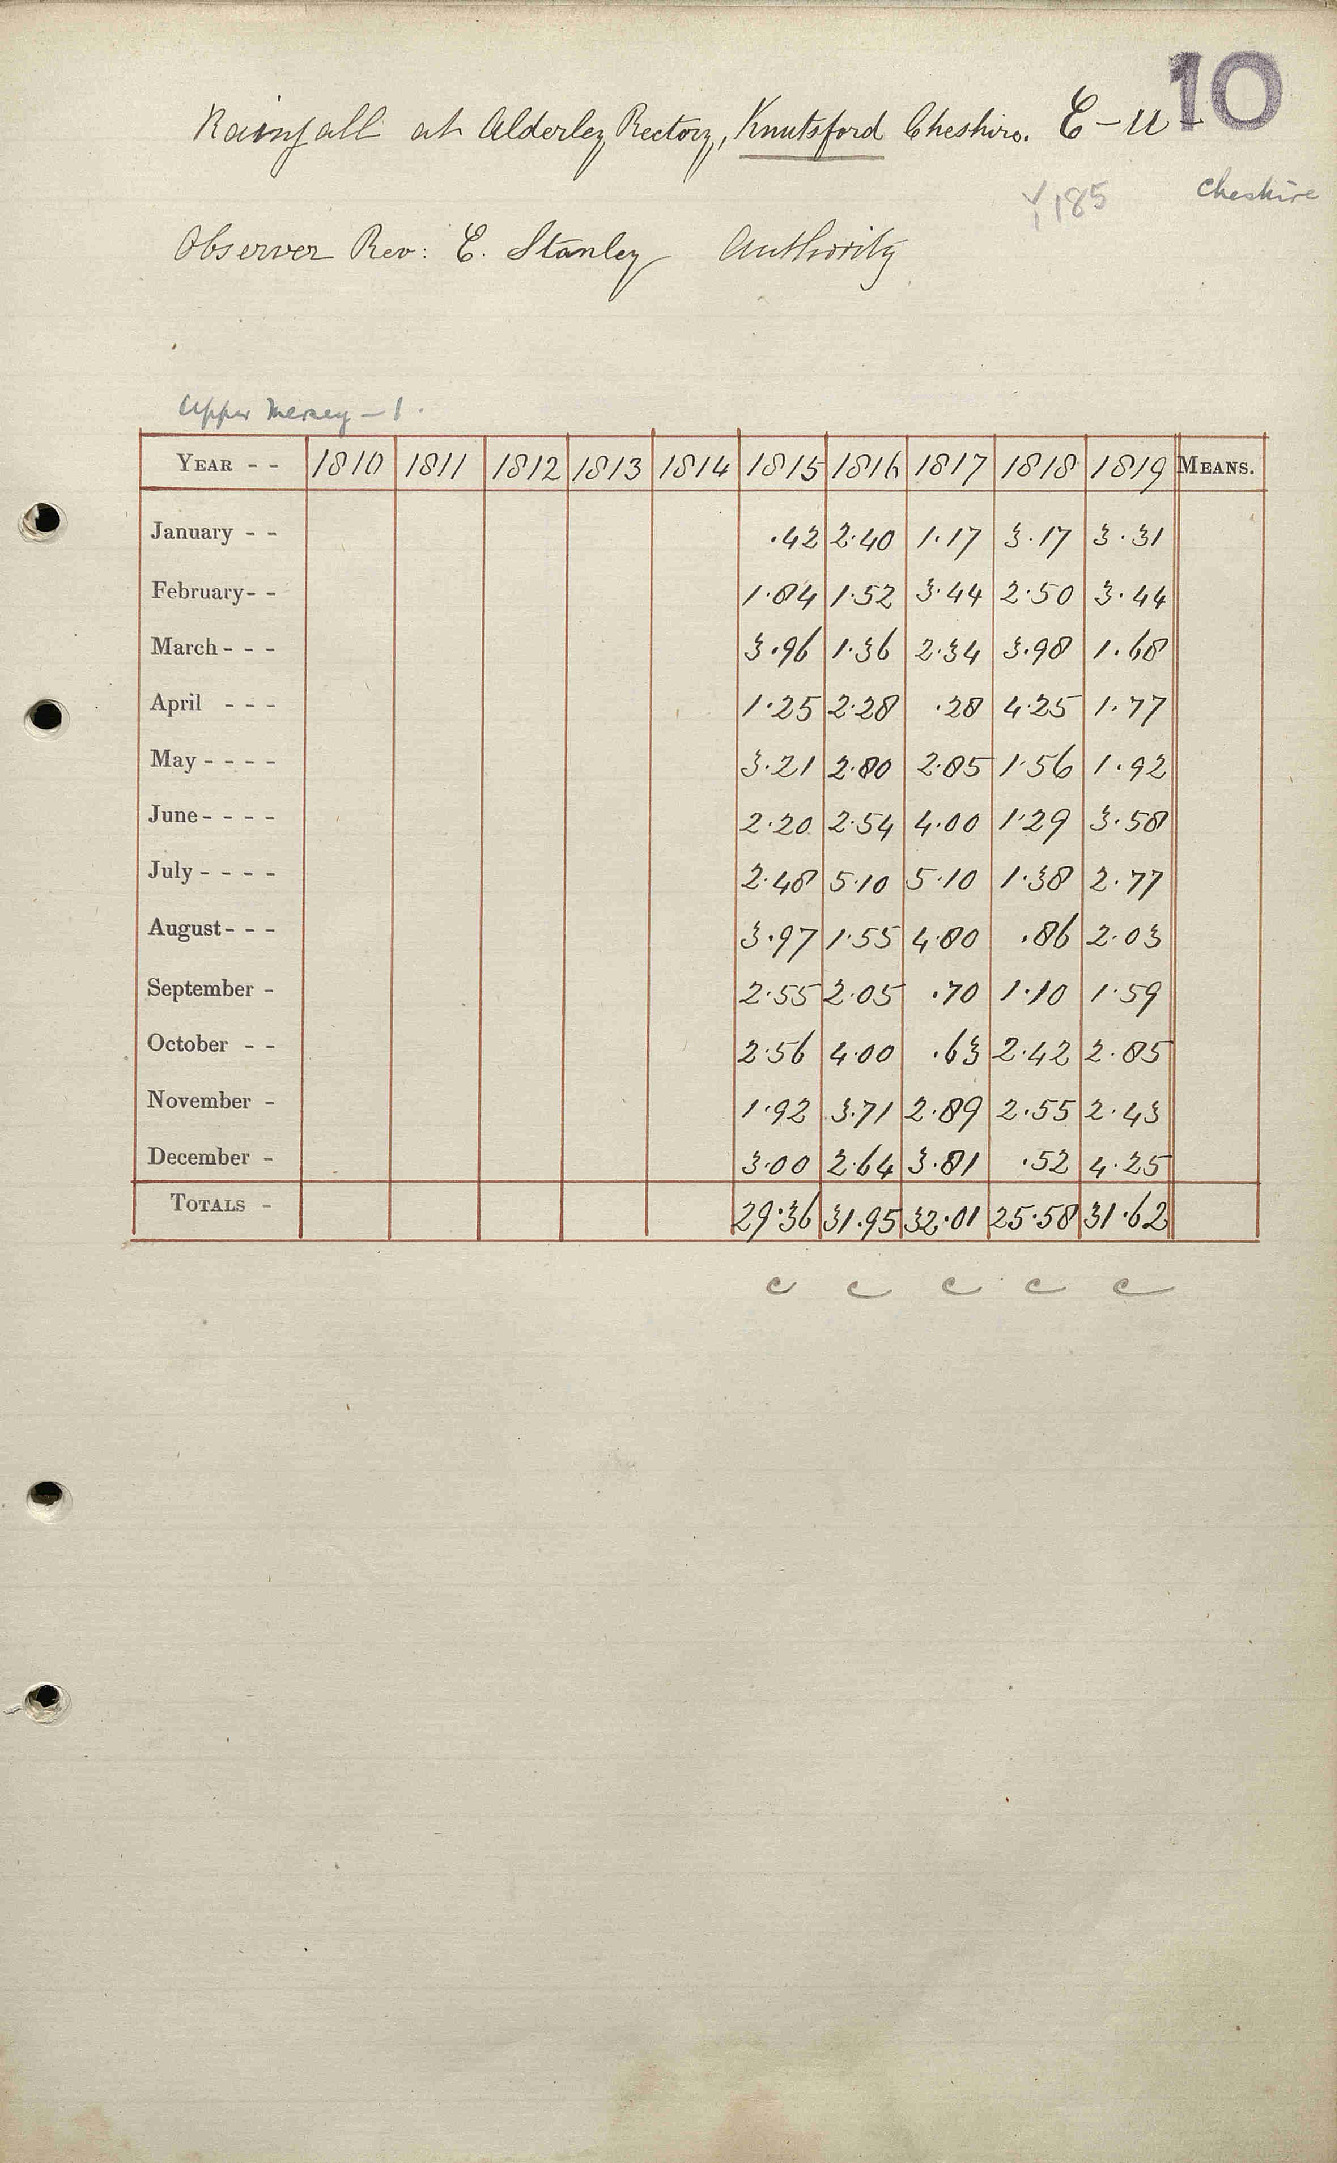 10
Rainfall at Alderley Rectory, Knutsford Cheshire. E - U -
Y185 Cheshire
Observer Rev: E. Stanley Authority
Upper Mersey - 1.
YEAR - - 1810 1811 1812 1813 1814 1815 1816 1817 1818 1819 MEANS.
January - - .42 2.40 1.17 3.17 3.31
February - - 1.84 1.52 3.44 2.50 3.44
March - - - 3.96 1.36 2.34 3.98 1.68
April - - - 1.25 2.28 .28 4.25 1.77
May - - - - 3.21 2.80 2.85 1.56 1.92
June - - - - 2.20 2.54 4.00 1.29 3.58
July - - - - 2.48 5.10 5.10 1.38 2.77
August - - - 3.97 1.55 4.80 .86 2.03
September - 2.55 2.05 .70 1.10 1.59
October - - 2.56 4.00 .63 2.42 2.85
November - 1.92 3.71 2.89 2.55 2.43
December - 3.00 2.64 3.81 .52 4.25
TOTALS - 29.36 31.95 32.01 25.58 31.62
c c c c c